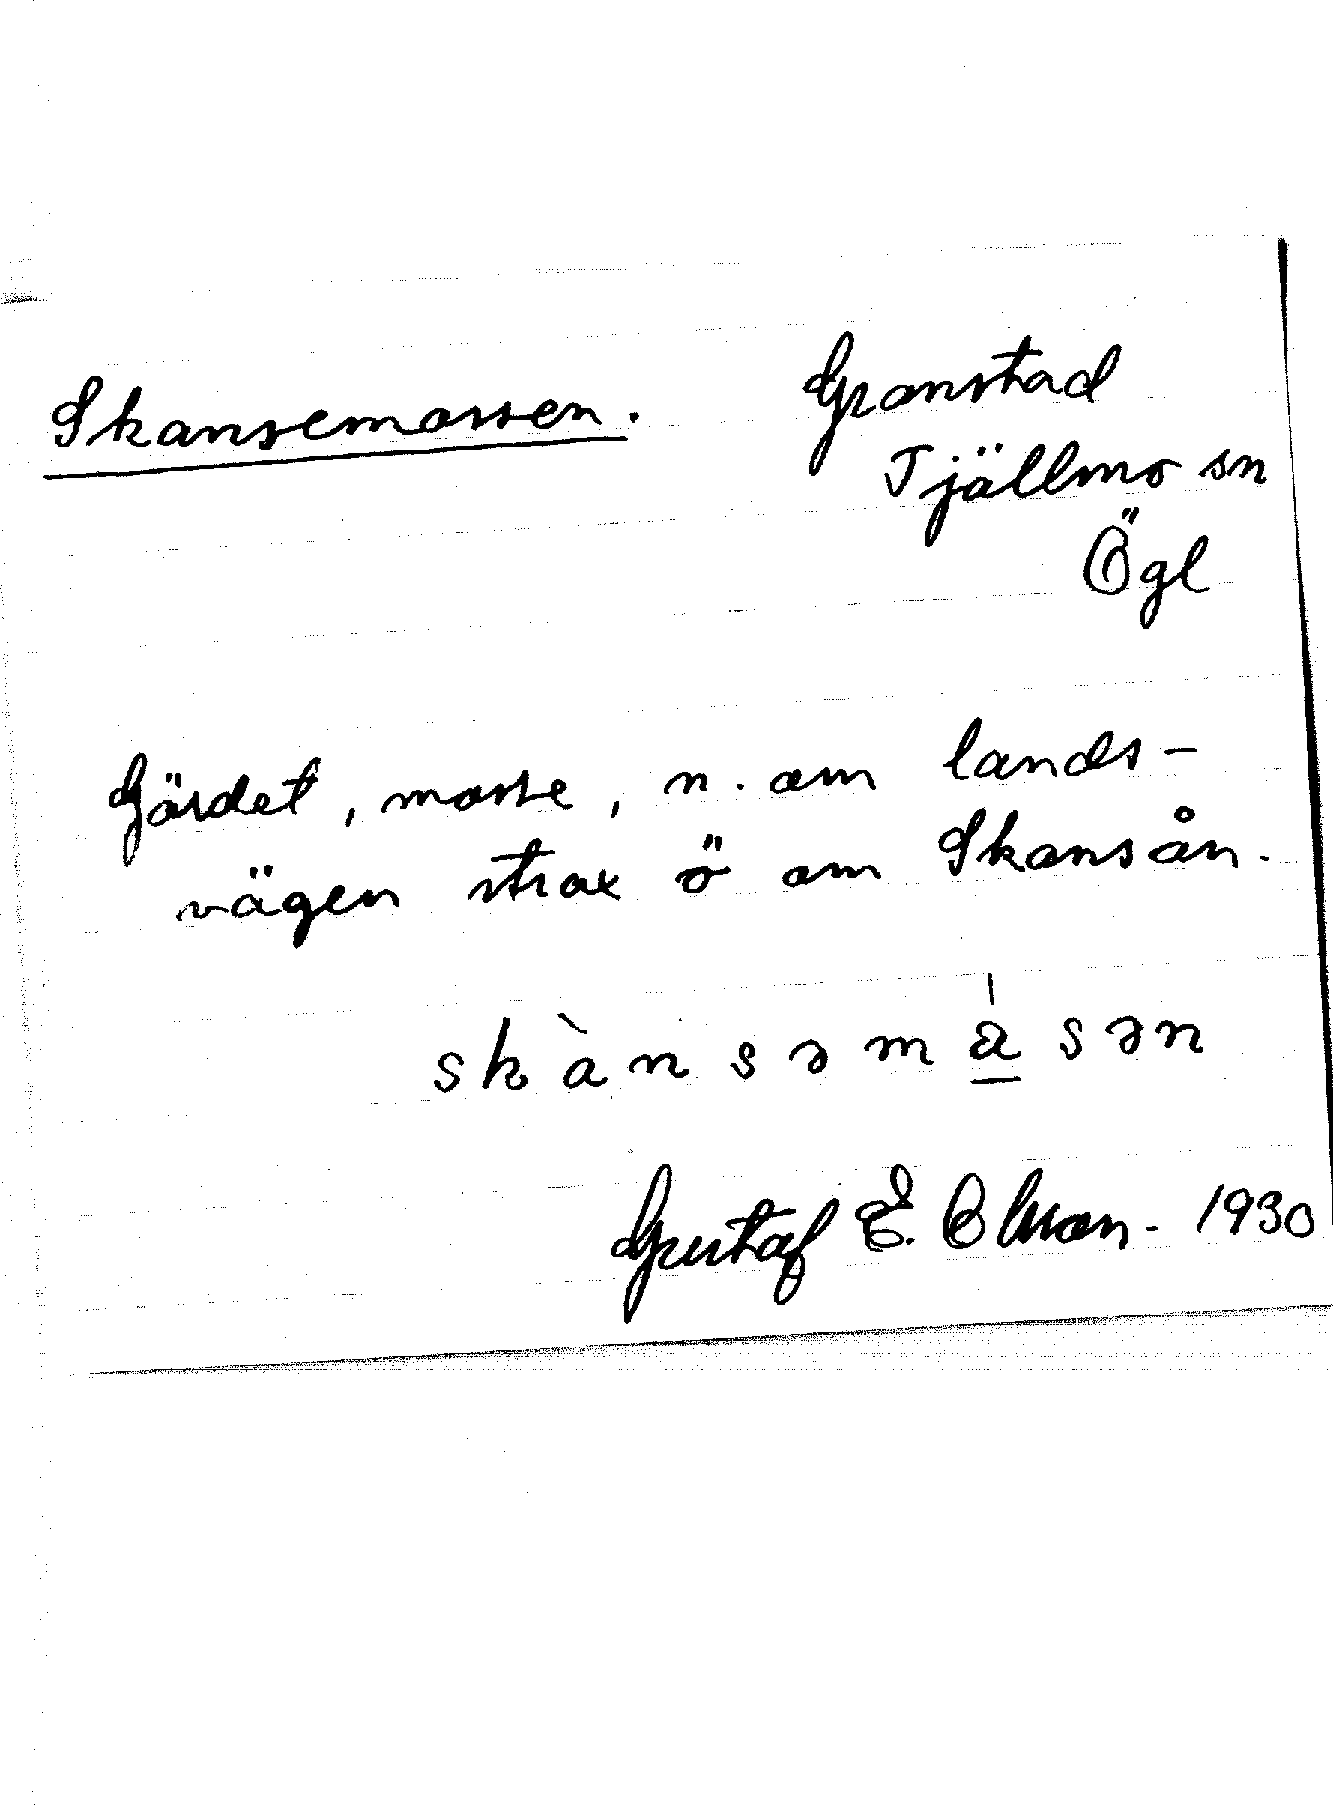 Skansemossen.
Granstad
Tjällmo sn
Ögl
Gärdet, mosse, n. om lands-
vägen strax ö om Skansån.
skànsəmåsən
Gustaf E. Olsson. 1930